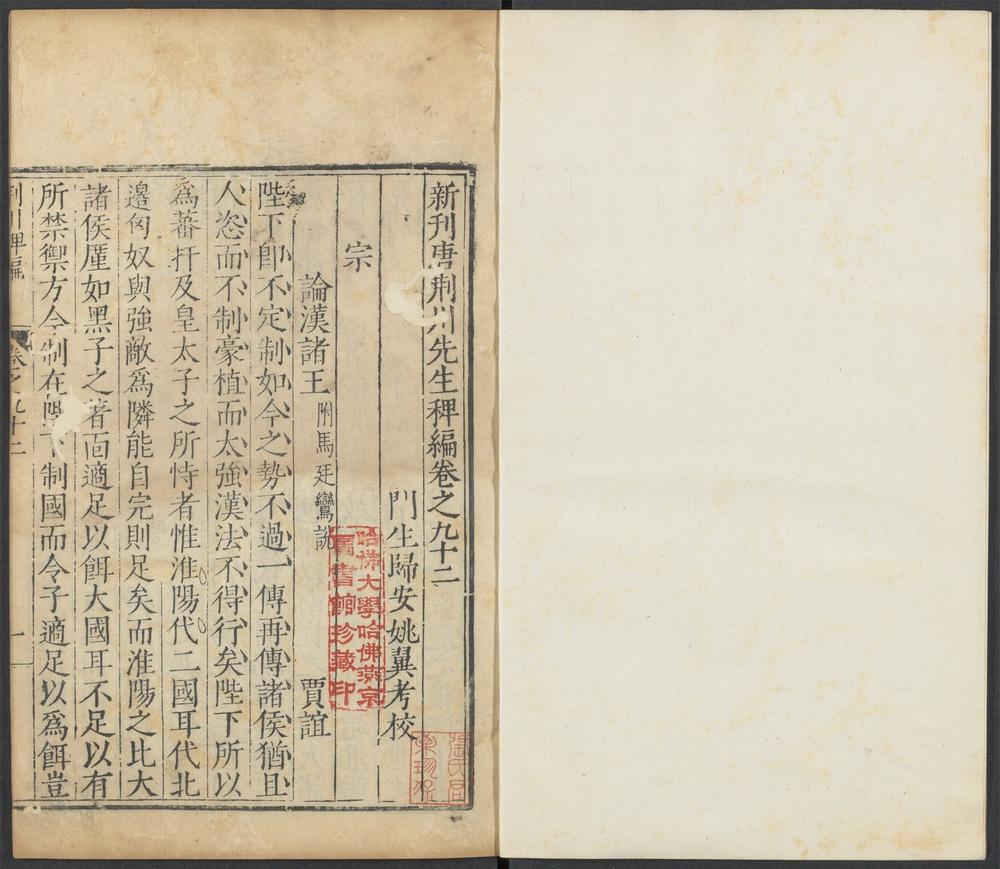 新刊唐荆川先生稗編卷之九十二
門生歸安姚翼考校
宗
論漢諸王 附馬廷鸞說 賈誼
陛下卽不定制如今之勢不過一傳再傳諸侯猶且
人恣而不制豪植而太強漢法不得行矣陛下所以
爲蕃扞及皇太子之所恃者惟淮陽代二國耳代北
邊匈奴與強敵爲隣能自完則足矣而淮陽之比大
諸侯厪如黑子之著面適足以餌大國耳不足以有
所禁禦方今制在陛下制國而令子適足以爲餌豈
荆川稗編 卷之九十二 一
哈佛大學哈佛燕京
圖書館珍藏印